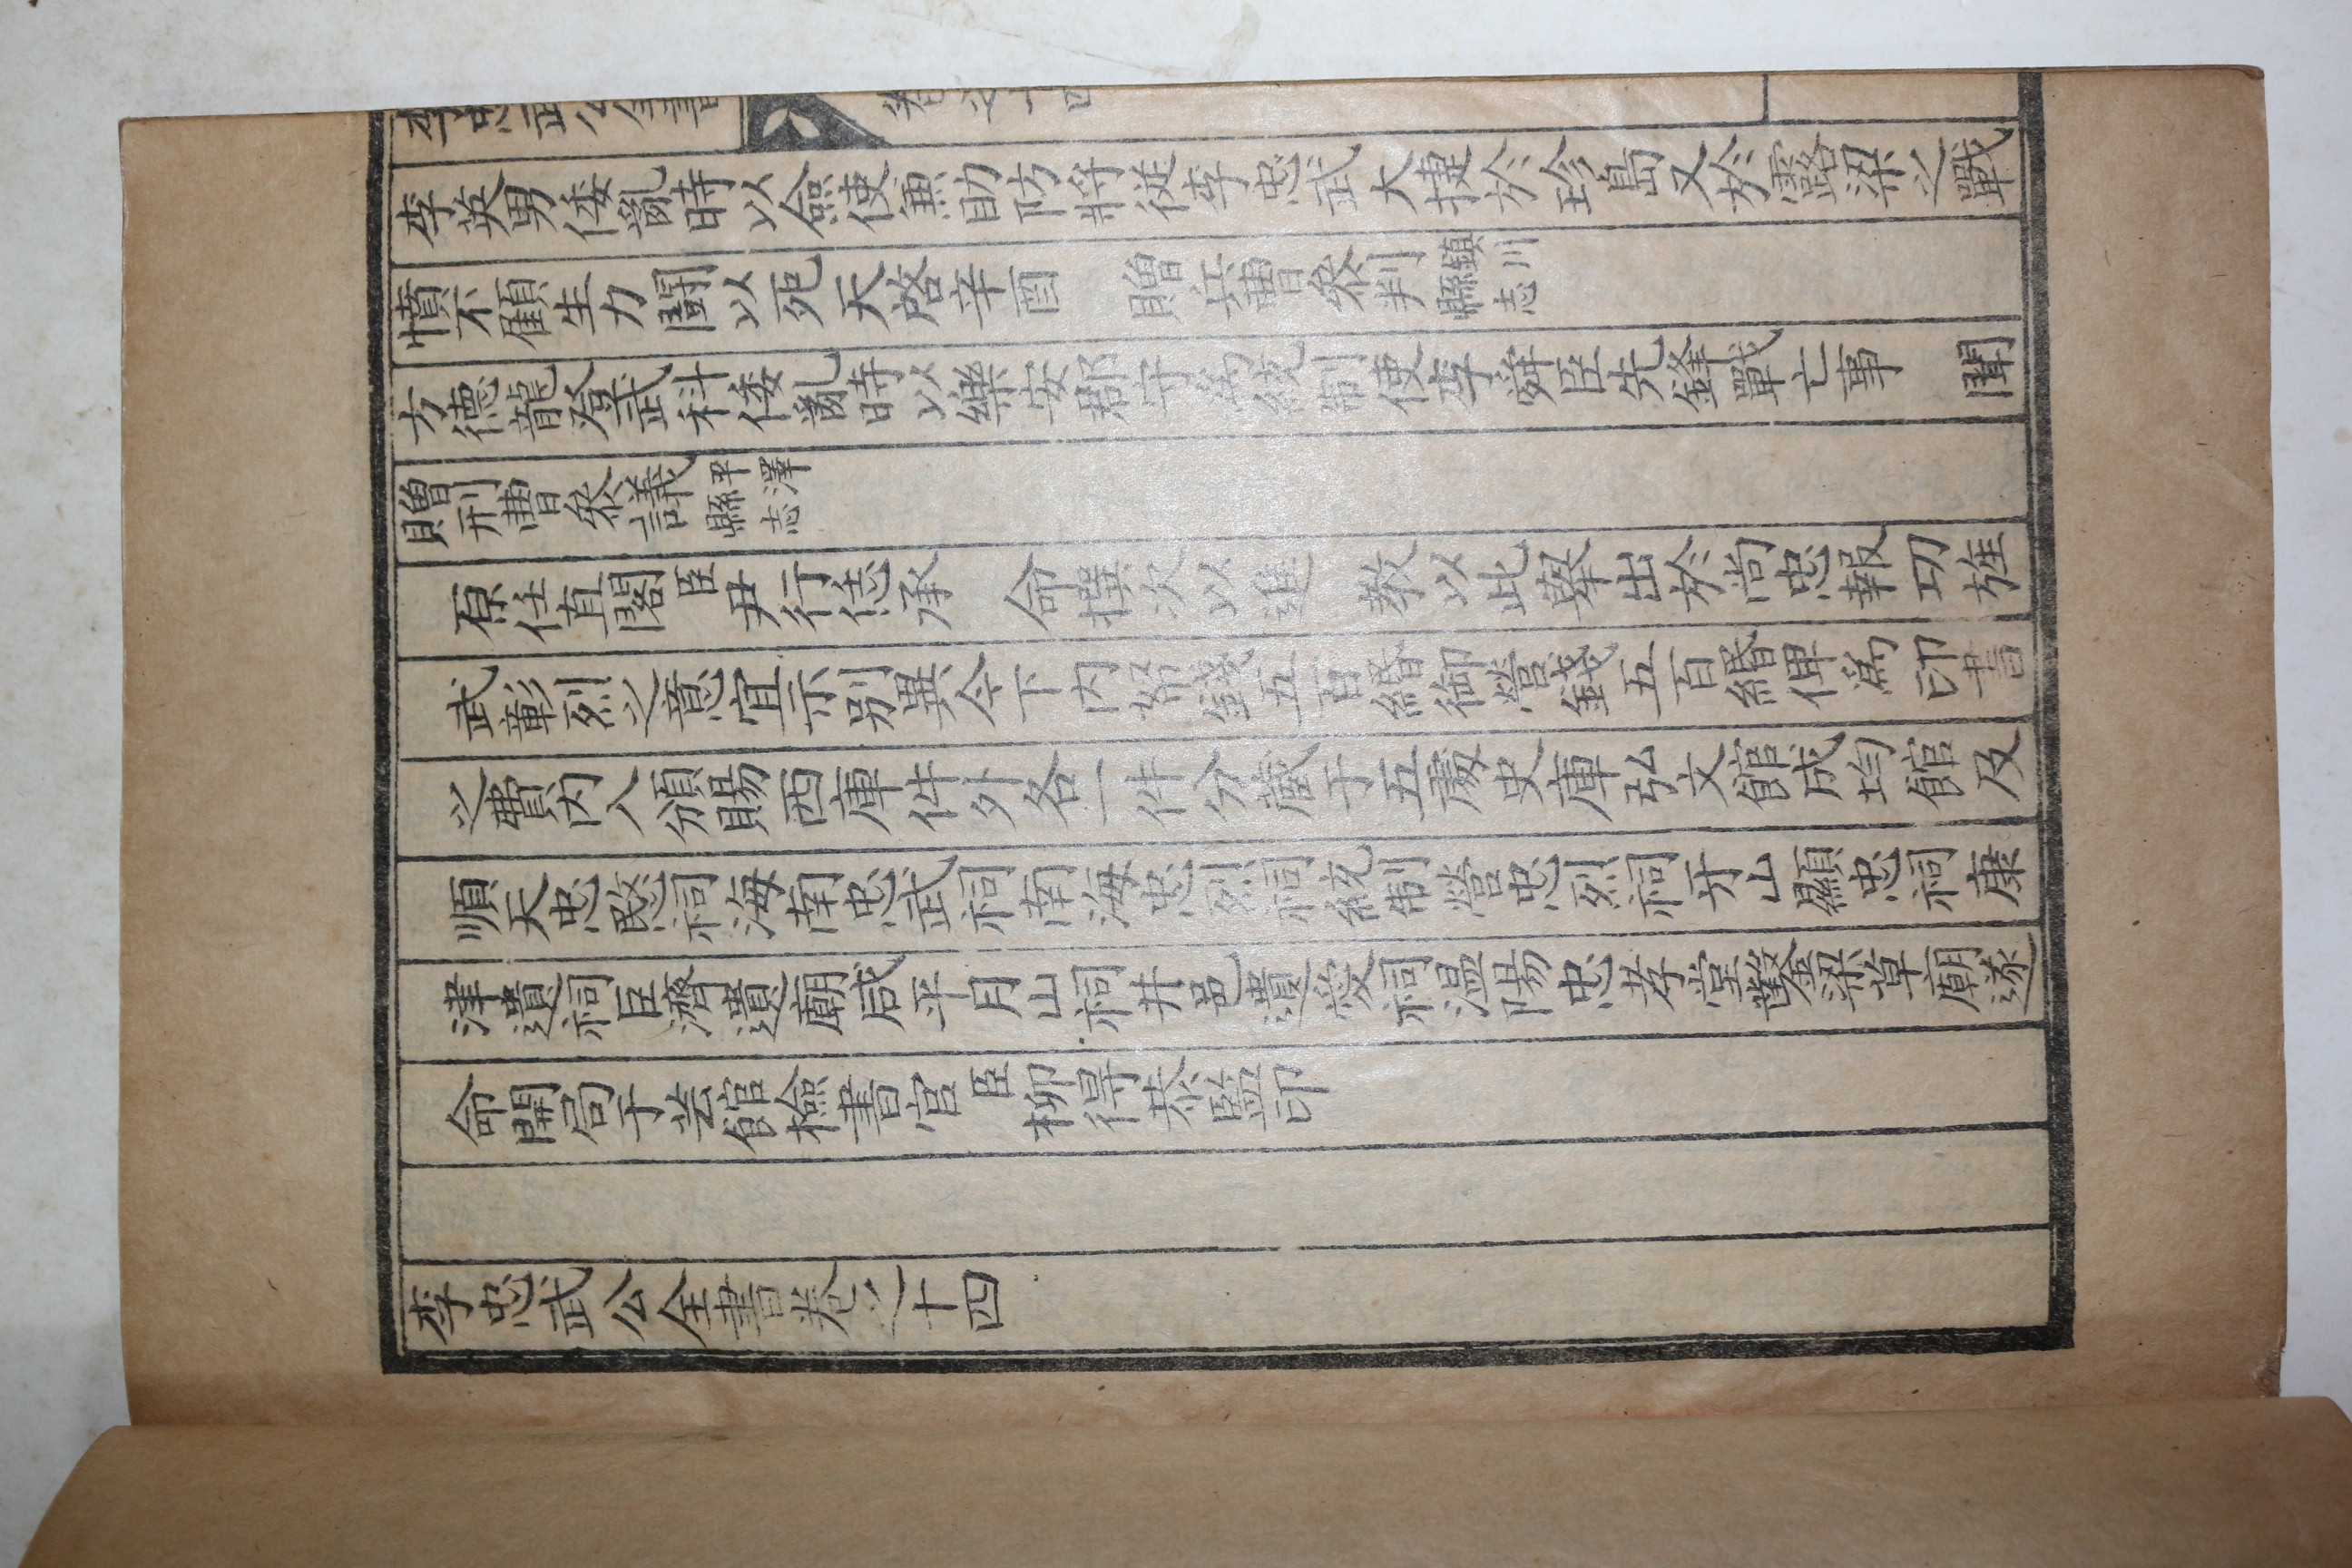 李忠武公全書 卷之十四
李英男倭亂時以僉使兼助防將從李忠武大捷於珍島又於露梁之戰
憤不顧生力鬪以死天啓辛酉 贈兵曹參判鎭川縣志
方德龍登武科倭亂時以樂安郡守爲統制使李舜臣先鋒戰亡事 聞
贈刑曹參議平澤縣志
原任直閣臣尹行恁承 命撰次以進 教以此擧出於尚忠報功旌
武彰烈之意宜示別異今下內帑錢五百緡御營錢五百緡俾爲印書
之費內入頒賜西庫件外各一件分藏于五處史庫弘文館成均館及
順天忠愍祠海南忠武祠南海忠烈祠統制營忠烈祠牙山顯忠祠康
津遺祠巨濟遺廟咸平月山祠井邑遺愛祠温陽忠孝堂鑿梁草廟遂
命開局于芸館檢書官臣柳得恭監印
李忠武公全書卷之十四